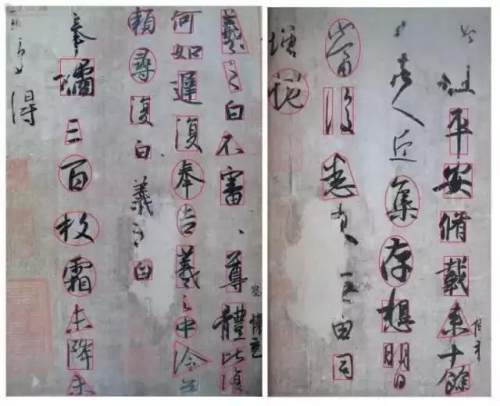 此粗平安脩載來十餘
諸人近集存想明日
當復悉來無由同
增慨
羲之白不審尊體比復
何如遲復奉告羲之中冷無
賴尋復白羲之白
奉橘三百枚霜未降未
可多得